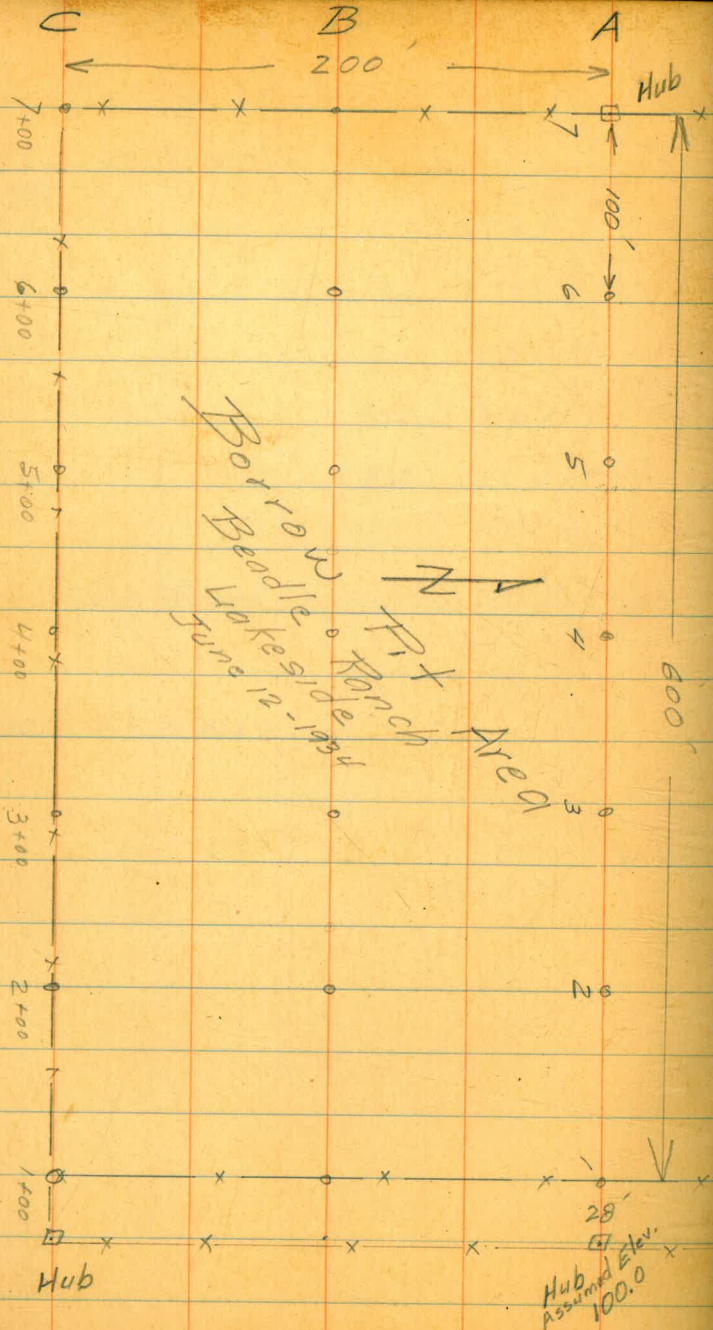 C B A
200'
Hub
7+00 7
100'
6+00 6
5+00 5
600'
N
Borrow Pit Area
Beadle Ranch
Lakeside
June 12-1934
4+00 4
3+00 3
2+00 2
1+00 1
28'
Hub
Hub
Assumed Elev.
100.0